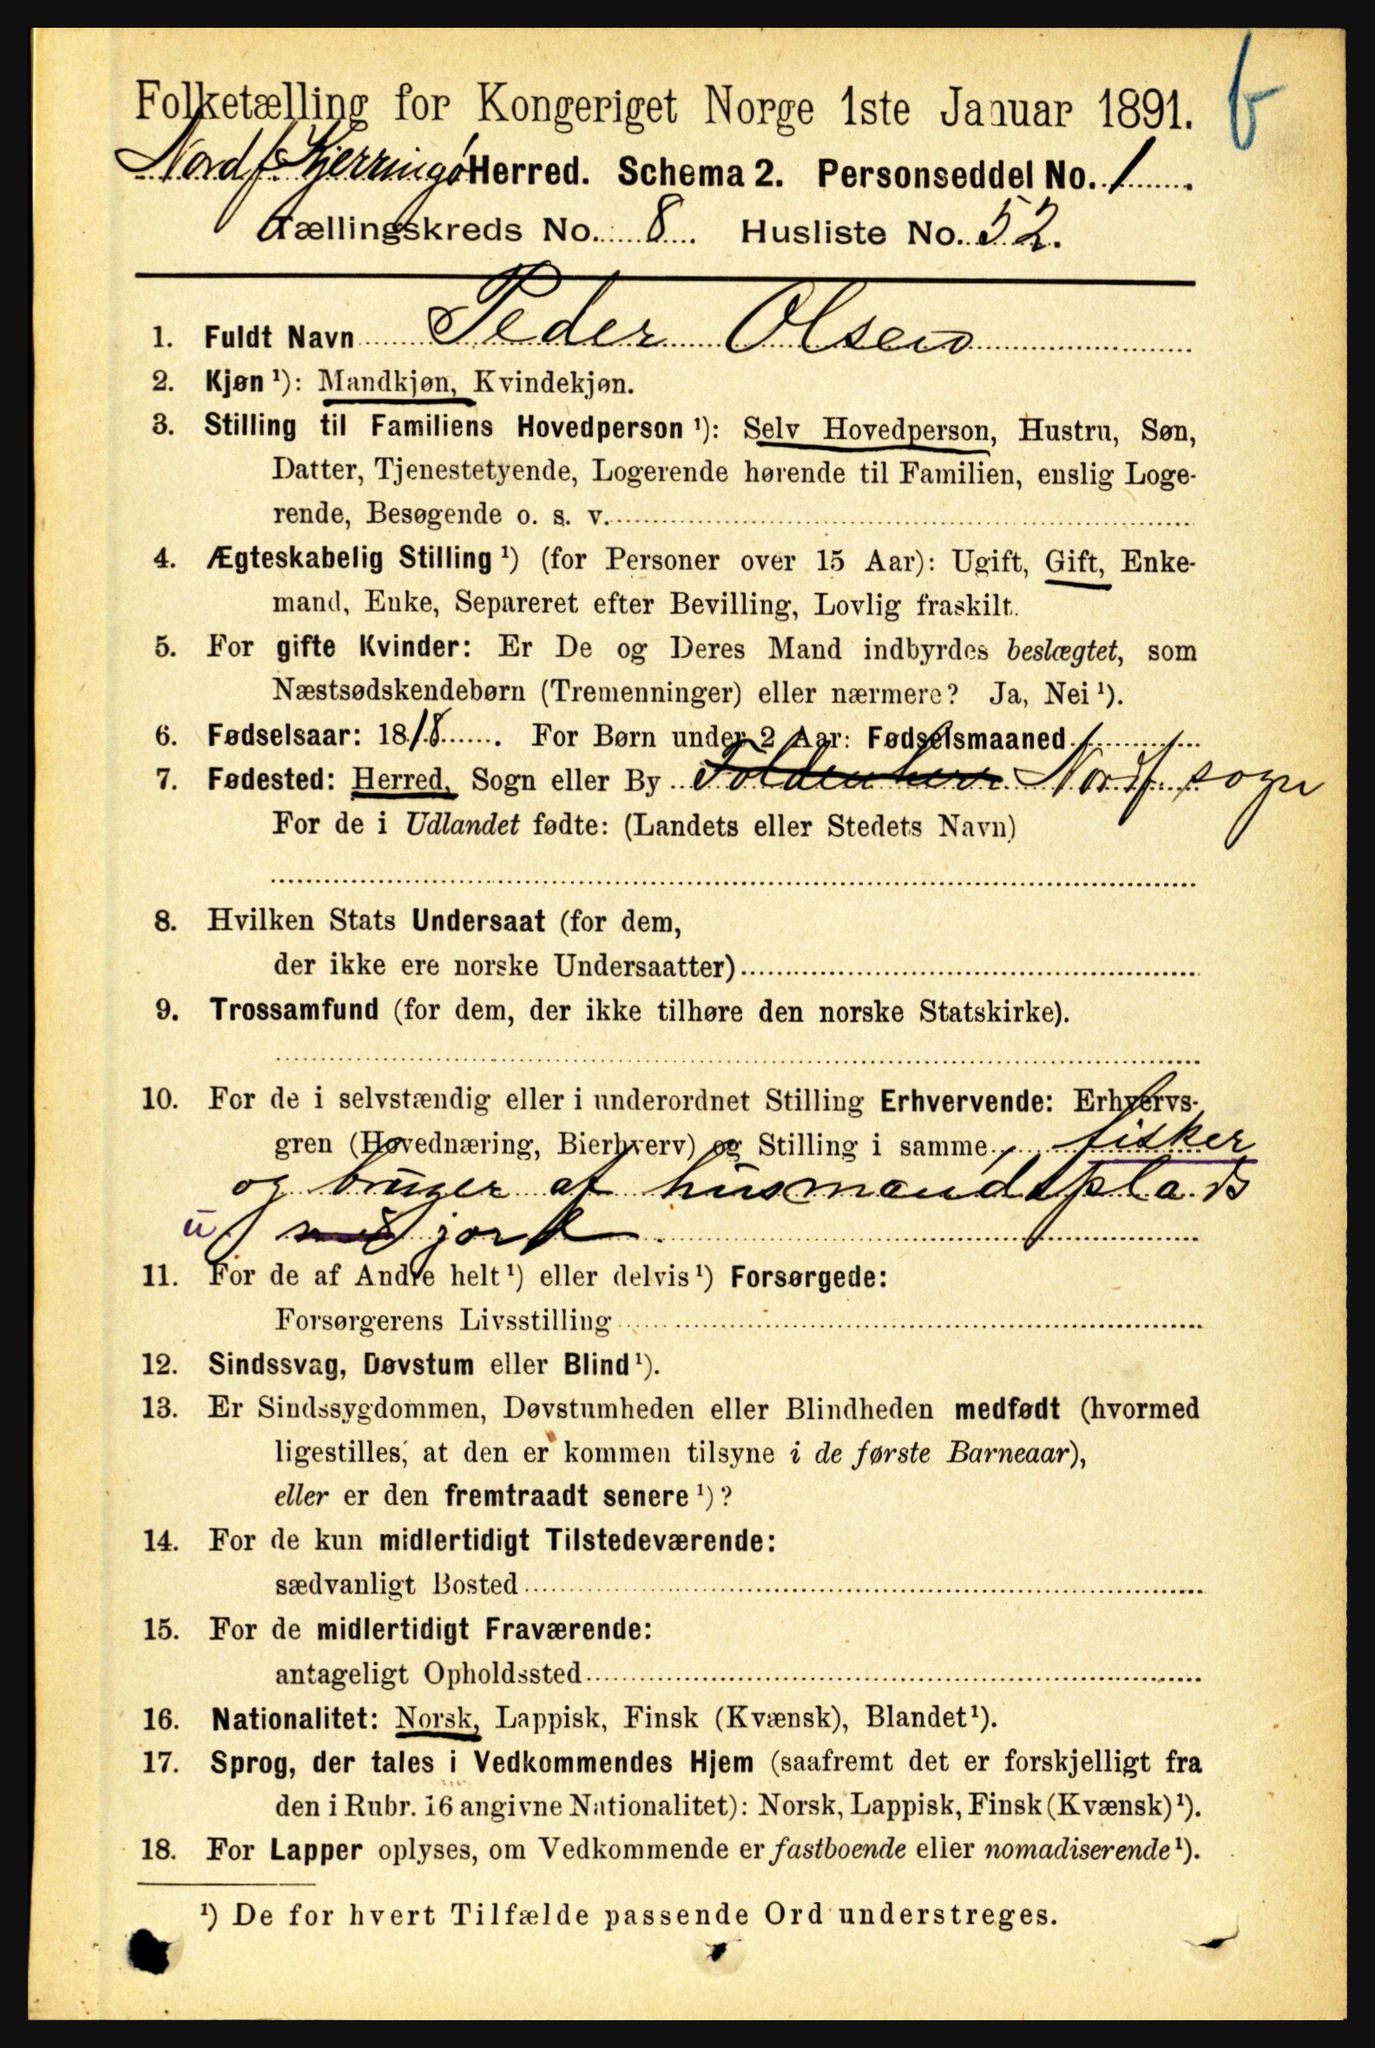 Folketælling for Kongeriget Norge 1ste Januar 1891.
Nordf. Kjerringø Herred. Schema 2. Personseddel No. 1
Tællingskreds No. 8 Husliste No. 52.
1. Fuldt Navn Peder Olsen
2. Kjøn ¹): Mandkjøn, Kvindekjøn.
3. Stilling til Familiens Hovedperson ¹): Selv Hovedperson, Hustru, Søn,
Datter, Tjenestetyende, Logerende hørende til Familien, enslig Loge-
rende, Besøgende o. s. v.
4. Ægteskabelig Stilling ¹) (for Personer over 15 Aar): Ugift, Gift, Enke-
mand, Enke, Separeret efter Bevilling, Lovlig fraskilt.
5. For gifte Kvinder: Er De og Deres Mand indbyrdes beslægtet, som
Næstsødskendebørn (Tremenninger) eller nærmere? Ja, Nei ¹).
6. Fødselsaar: 1818. For Børn under 2 Aar: Fødselsmaaned
7. Fødested: Herred, Sogn eller By Nordf. sogn
For de i Udlandet fødte: (Landets eller Stedets Navn)
8. Hvilken Stats Undersaat (for dem,
der ikke ere norske Undersaatter)
9. Trossamfund (for dem, der ikke tilhøre den norske Statskirke).
10. For de i selvstændig eller i underordnet Stilling Erhvervende: Erhvervs-
gren (Hovednæring, Bierhverv) og Stilling i samme fisker
og bruger af husmandsplads
u med jord
11. For de af Andre helt ¹) eller delvis ¹) Forsørgede:
Forsørgerens Livsstilling
12. Sindssvag, Døvstum eller Blind ¹).
13. Er Sindssygdommen, Døvstumheden eller Blindheden medfødt (hvormed
ligestilles, at den er kommen tilsyne i de første Barneaar),
eller er den fremtraadt senere ¹)?
14. For de kun midlertidigt Tilstedeværende:
sædvanligt Bosted
15. For de midlertidigt Fraværende:
antageligt Opholdssted
16. Nationalitet: Norsk, Lappisk, Finsk (Kvænsk), Blandet ¹).
17. Sprog, der tales i Vedkommendes Hjem (saafremt det er forskjelligt fra
den i Rubr. 16 angivne Nationalitet): Norsk, Lappisk, Finsk (Kvænsk) ¹).
18. For Lapper oplyses, om Vedkommende er fastboende eller nomadiserende ¹).
¹) De for hvert Tilfælde passende Ord understreges.